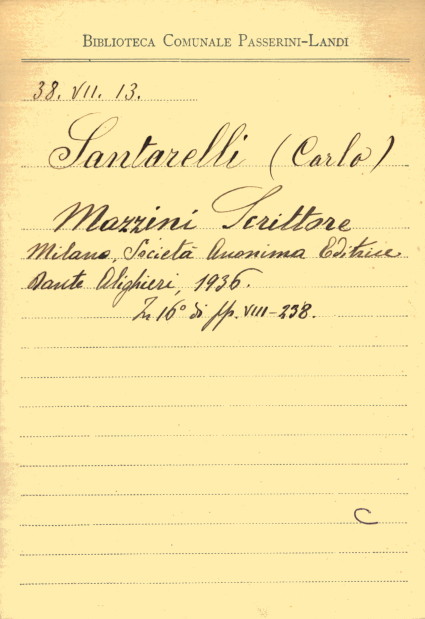 BIBLIOTECA COMUNALE PASSERINI-LANDI
38. VII. 13.
Santarelli (Carlo)
Mazzini Scrittore
Milano, Società Anonima Editrice
Dante Alighieri, 1936.
In 16° di pp. VIII-238.
C